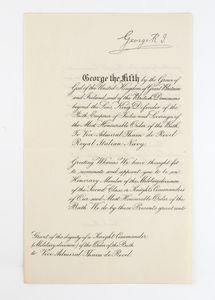 George R.I.
George the Fifth by the Grace of
God of the United Kingdom of Great Britain
and Ireland and of the British Dominions
beyond the Seas, King, Defender of the
Faith, Emperor of India and Sovereign of
the Most Honourable Order of the Bath
To Vice Admiral Thaon de Revel
Royal Italian Navy
Greeting Whereas We have thought fit
to nominate and appoint you to be an
Honorary Member of the Military division
of the Second Class or Knights Commanders
of Our said Most Honourable Order of the
Bath We do by these Presents grant unto
Grant of the dignity of a Knight Commander
(Military division) of the Order of the Bath
to Vice Admiral Thaon de Revel